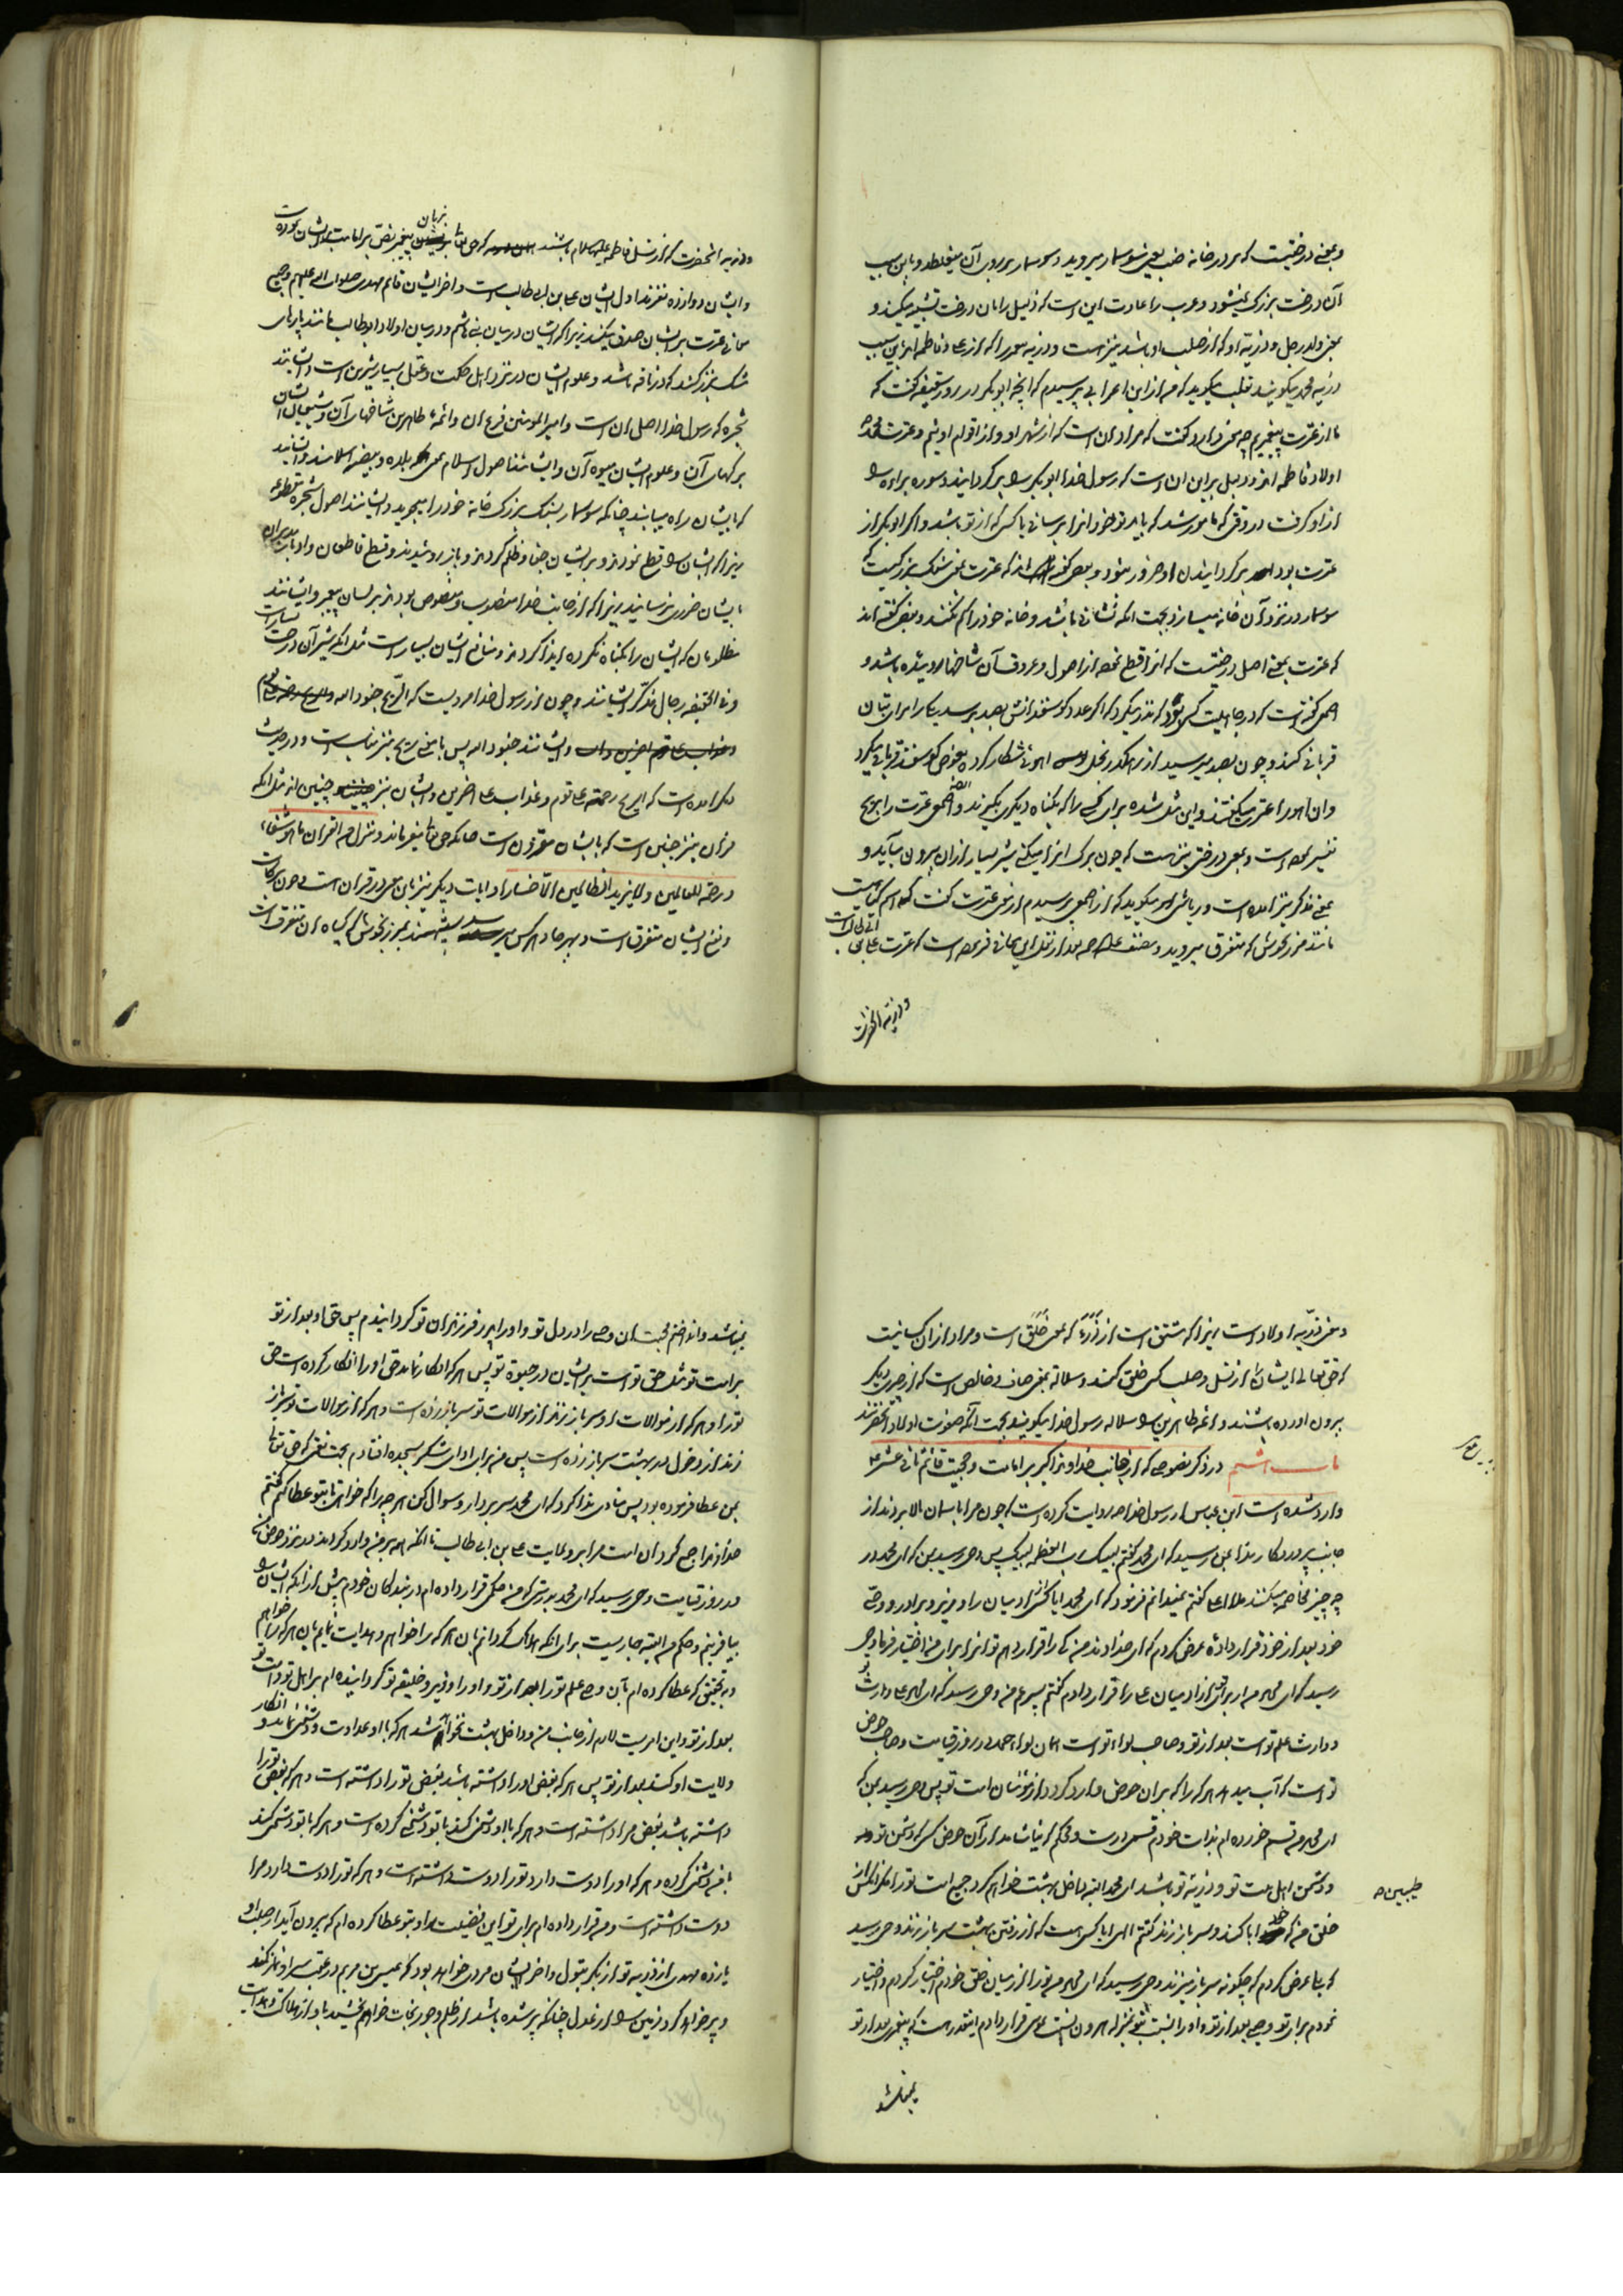 و بمعنی درختیست که بر در خانه ضب یعنی سوسمار میروید و سوسمار بر روی آن میغلطد و باین سبب
آن درخت بزرگ نمیشود و عرب را عادت این است که ذلیل را بان درخت تشبیه میکنند و
بمعنی ولد رجل و ذریه او که از صلب او باشد نیز هست و ذریه محمد را که از علی و فاطمه اند باین سبب
ذریه محمد میگویند ثعلب میگوید که من از ابن اعرابی پرسیدم که انچه ابوبکر در روز سقیفه گفت که
ما از عترت پیغمبریم چه معنی دارد گفت که مراد ان است که از شهر او و از اقوام اوئیم و عترت محمد
اولاد فاطمه اند و دلیل بر این ان است که رسول خدا ابوبکر را برگردانید و سوره براءة را
از او گرفت در وقتی که مامور شد که باید تو خود انرا برسانی یا کسی که از تو باشد و اگر ابوبکر از
عترت بود برگردانیدن او ضرور نبود و بعضی گفته اند که عترت بمعنی سنگ بزرگیست که
سوسمار در نزد آن خانه میسازد بجهت انکه نشانی باشد و خانه خود را گم نکند و بعضی گفته اند
که عترت بمعنی اصل درختیست که انرا قطع نموده از اصول و عروق آن شاخها روئیده باشد و
اصمعی گفته است که در جاهلیت کسی بود که نذر میکرد که اگر عدد گوسفندانش بصد برسد یکی را برای بتان
قربانی کند و چون بصد میرسید از راه بخل اهوئی شکار کرده بعوض گوسفند قربانی میکرد
و ان اهو را عتره میگفتند و این مثل شده برای کسی را که بگناه دیگری بگیرند و اصمعی عترت را بریح
تفسیر نموده است و بمعنی درختی نیز هست که چون برگ انرا میکنی شیر بسیار از ان بیرون میآید و
بمعنی ذکر نیز امده است و ریاشی میگوید که از اصمعی پرسیدم از معنی عترت گفت که اسم گیاهیست
مانند مرزنجوش که متفرق میروید و مصنف بعد از نقل این معانی فرموده است که عترت علی بن ابی طالب است
و ذریه انحضرت
و ذریه انحضرت که از نسل فاطمه علیها السلام باشند که حق تعالی بزبان پیغمبر نص بر امامت ایشان نموده است
و ایشان دوازده نفرند اول ایشان علی بن ابی طالب است و اخر ایشان قائم مهدی صلوات الله علیهم و جمیع
معانی عترت بر ایشان صدق میکند زیرا که ایشان در میان بنی هاشم و در میان اولاد ابوطالب مانند پارهای
مشک بزرگند که در نافه باشد و علوم ایشان در نزد اهل حکمت و عقل بسیار شیرین است و ایشانند
شجره که رسول خدا اصل ان است و امیرالمومنین فرع ان و ائمه طاهرین شاخهای آن و شیعیان ایشان
برگهای آن و علوم ایشان میوه آن و ایشانند اصول اسلام بمعنی بلده و بیضه اسلامند و ایشانند
که بایشان راه مییابند چنانکه سوسمار بسنگ بزرگ خانه خود را میجوید و ایشانند اصول شجره مقطوعه
زیرا که ایشان را قطع نمودند و بر ایشان جفا و ظلم کردند و باز روئیدند و قطع قاطعان و ادبار مدبران
بایشان ضرری نرسانید زیرا که از جانب خدا منصوب و منصوص بودند بر لسان پیغمبر و ایشانند
مظلومان که ایشان را بگناه نکرده ایذا کردند و منافع ایشان بسیار است مثل انکه شیر آن درخت بسیار است
و فی الحقیقه رجال مذکر ایشانند و چون از رسول خدا مرویست که الریح جنود الله
و ایشانند جنود الله پس با معنی ریح نیز مناسب است و در حدیث
دیگر امده است که الریح رحمة علی قوم و عذاب علی اخرین و ایشان نیز چنین اند مثل انکه
قران نیز چنین است که بایشان مقرون است چنانکه حق تعالی میفرماید و ننزل من القران ما هو شفاء
و رحمة للعالمین و لا یزید الظالمین الا خسارا و ایات دیگر نیز باین معنی در قران است و چون برکات
و نفع ایشان متفرق است و بهر جا و بهر کس میرسد شبیهند بمرزنجوش که گیاه ان متفرق است
و معنی ذریه اولاد است زیرا که مشتق است از ذَرَأَ که بمعنی خَلَقَ است و مراد از ان کسانیست
که حق تعالی ایشان را از نسل و صلب کسی خلق کند و سلاله بمعنی صاف و خالص است که از چیزی دیگر
بیرون اورده باشند و ائمه طاهرین را سلاله رسول خدا میگویند بجهت آنکه صفوت اولاد انحضرتند
باب ششم در ذکر نصوصی که از جانب خداوند اکبر بر امامت و حجیت قائم ثانی عشر ع
وارد شده است ابن عباس از رسول خدا روایت کرده است که چون مرا باسمان بالا بردند از
جانب پروردگار ندا بمن رسید که ای محمد گفتم لبیک رب العظمه لبیک پس وحی رسید بمن که ای محمد در
چه چیز مخاصمه میکنند ملاء اعلی گفتم نمیدانم فرمود که ای محمد ایا کسی را از ادمیان را وزیر و برادر و وصی
خود بعد از خود قرار دادهٔ عرض کردم که ای خداوند من که را قرار دهم تو از برای من اختیار فرما وحی
رسید که ای محمد من از برای تو از ادمیان علی را قرار دادم گفتم پسر عم من وحی رسید که ای محمد علی وارث تو
و وارث علم تو است بعد از تو و صاحب لواء تو است که ان لواء حمد است در روز قیامت و صاحب حوض
تو است که آب میدهد هر که را که بر ان حوض وارد گردد از مؤمنان امت تو پس وحی رسید بمن که
ای محمد من قسم خورده ام بذات خودم قسمی درست و محکم که نیاشامد از آن حوض کسی که دشمن تو
و دشمن اهل بیت تو و ذریه تو باشد ای محمد البته داخل بهشت خواهم کرد جمیع امت تو را مگر انکس از
طیبین
خلق من که خود ابا کند و سر باز زند گفتم الهی ایا کسی هست که از رفتن بهشت سر باز زند وحی رسید
که بلی عرض کردم که چگونه سر باز میزند وحی رسید که ای محمد من تو را از میان خلق خودم اختیار کردم و اختیار
نمودم برای تو وصیی بعد از تو و او را نسبت بتو بمنزله هارون نسبت بموسی قرار دادم اینقدر هست که پیغمبری بعد از تو
نمیباشد
نمیباشد و انداختم محبت ان وصی را در دل تو و او را پدر فرزندان تو گردانیدم پس حق او بعد از تو
بر امت تو مثل حق تو است بر ایشان در حیوة تو پس هر که انکار نماید حق او را انکار کرده است حق
تو را و هر که از موالات او سر باز زند از موالات تو سر باز زده است و هر که از موالات تو سر باز
زند از دخول در بهشت سر باز زده است پس من برای ادای شکر بسجده افتادم بجهت نعمتی که حق تعالی
بمن عطا فرموده بود پس منادی ندا کرد که ای محمد سر بردار و سوال کن هر چیز را که خواهی تا بتو عطا کنم گفتم
خداوندا جمع گردان امت مرا بر ولایت علی بن ابی طالب تا انکه همه بر من وارد گردند در نزد حوض
در روز قیامت وحی رسید که ای محمد بدرستی که من حکمی قرار داده ام در بندگان خودم پیش از انکه ایشان را
بیافرینم و حکم من البته جاریست برای انکه هلاک گردانم بان هر که را خواهم و هدایت نمایم بان هر که را خواهم
و بتحقیق که عطا کرده ام بآن وصی علم تو را بعد از تو و او را وزیر و خلیفه تو گردانیده ام بر اهل تو و امت تو
بعد از تو و این امریست لازم از جانب من و داخل بهشت نخواهد شد هر که با او عداوت و دشمنی نماید و انکار
ولایت او کند بعد از تو پس هر که بغض او را داشته باشد بغض تو را داشته است و هر که بغض تو را
داشته باشد بغض مرا داشته است و هر که با او دشمنی کند با تو دشمنی کرده است و هر که با تو دشمنی کند
با من دشمنی کرده و هر که او را دوست دارد تو را دوست داشته است و هر که تو را دوست دارد مرا
دوست داشته است و من قرار داده ام برای تو این فضیلت را و بتو عطا کرده ام که بیرون آید از صلب او
یازده مهدی از ذریه تو از بکر بتول و اخر ایشان مردی خواهد بود که عیسی بن مریم در عقب سر او نماز کند
و پر خواهد کرد زمین را از عدل چنانکه پر شده باشد از ظلم و جور نجات خواهم بخشید باو از هلاکت و هدایت